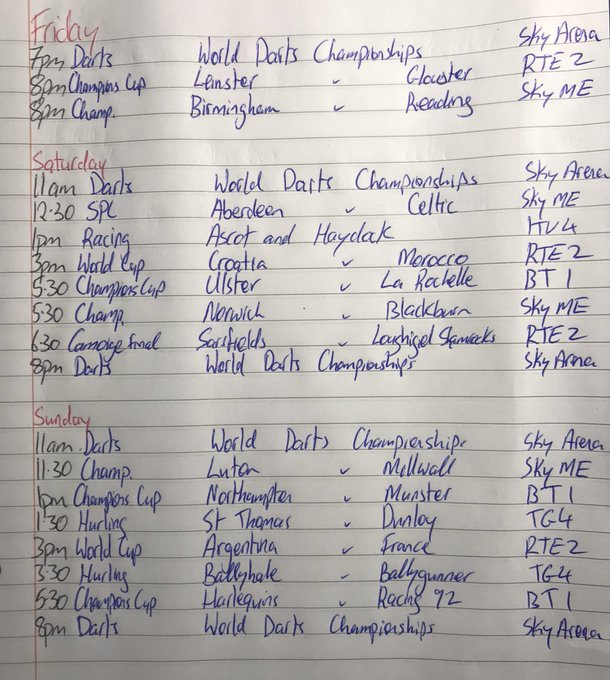 Friday
7pm Darts World Darts Championships Sky Arena
8pm Champions Cup Leinster v Gloucster RTE 2
8pm Champ. Birmingham v Reading Sky ME
Saturday
11am Darts World Darts Championships Sky Arena
12.30 SPL Aberdeen v Celtic Sky ME
1pm Racing Ascot and Haydak
3pm World Cup Croatia v Morocco RTE 2
5.30 Champions Cup Ulster v La Rochelle BT 1
5.30 Champ. Norwich v Blackburn Sky ME
6.30 Camogie Final Sarsfields v Loughigel Shamrocks RTE 2
8pm Darts World Darts Championships Sky Arena
Sunday
11am Darts World Darts Championships Sky Arena
11.30 Champ. Luton v Millwall Sky ME
1pm Champions Cup Northampton v Munster BT 1
1.30 Hurling St Thomas v Dunloy TG4
3pm World Cup Argentina v France RTE 2
3.30 Hurling Ballyhale v Ballygunner TG4
5.30 Champions Cup Harlequins v Racing 92 BT 1
8pm Darts World Darts Championships Sky Arena